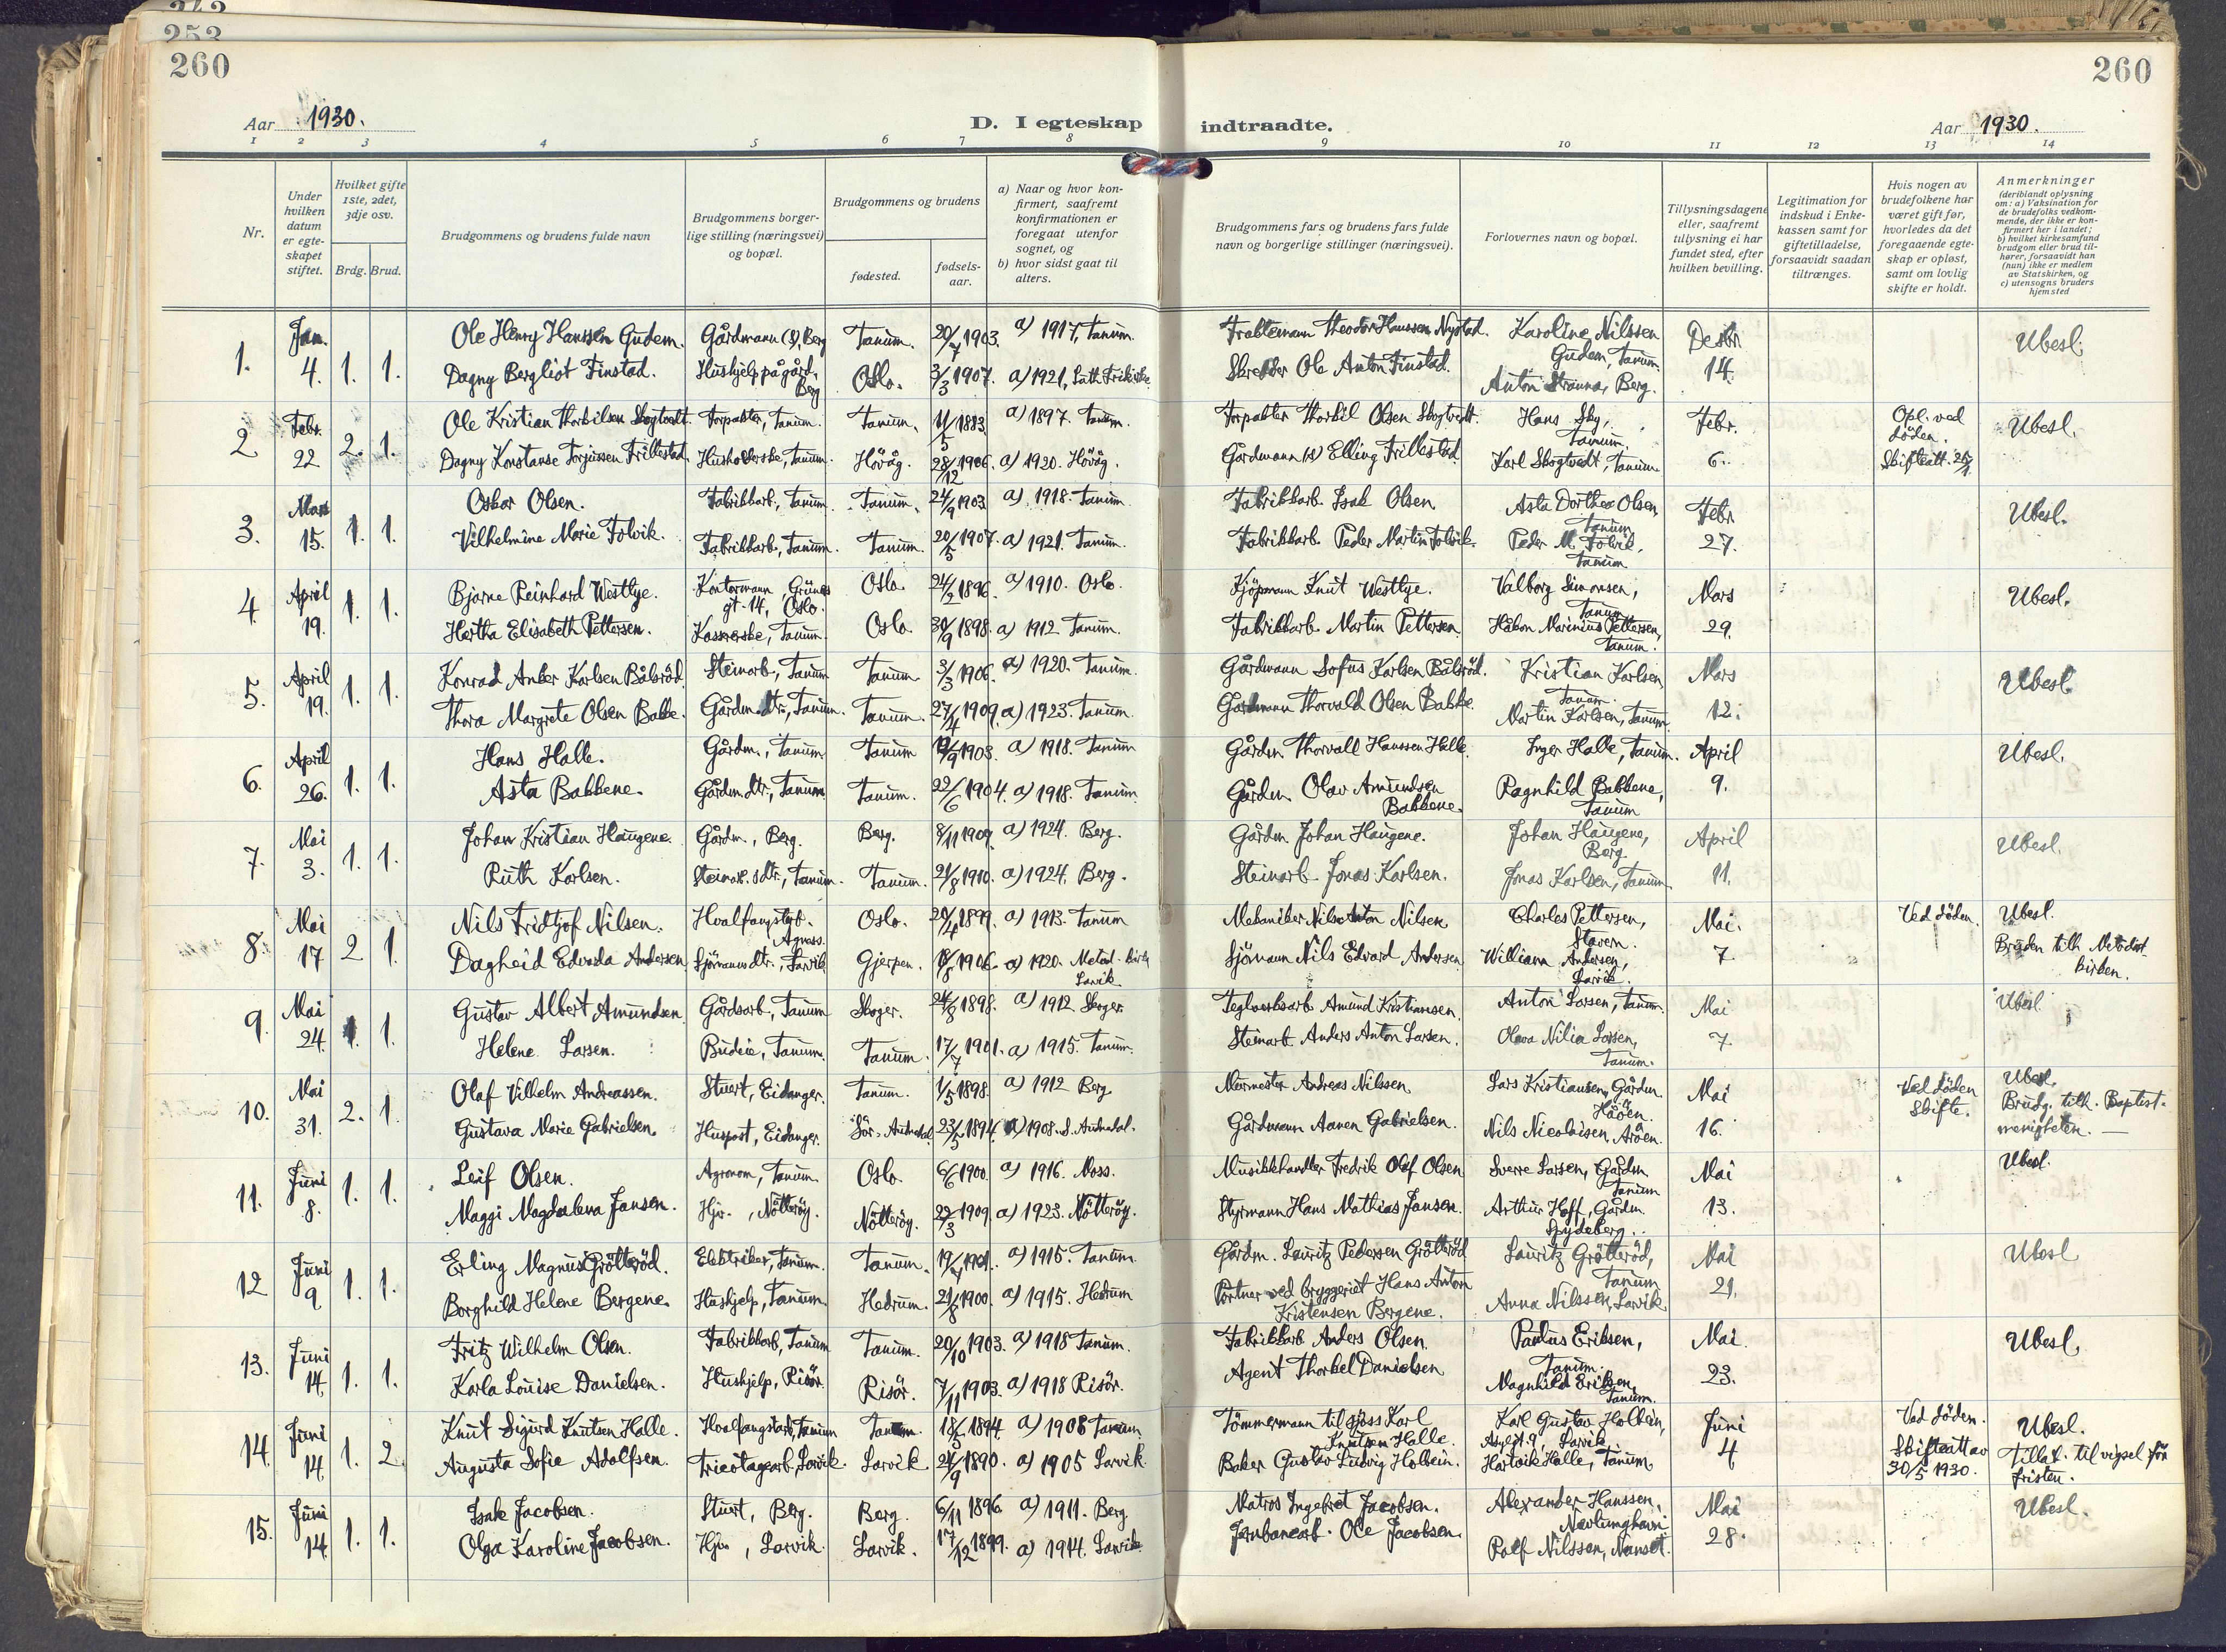 243
253
260
260
Aar 1930.
D. I egteskap indtraadte.
Aar 1930.
1 2 3 4 5 6 7 8 9 10 11 12 13 14
Nr.
Under hvilken datum er egteskapet stiftet.
Hvilket gifte 1ste, 2det, 3dje osv.
Brdg. Brud.
Brudgommens og brudens fulde navn
Brudgommens borgerlige stilling (næringsvei) og bopæl.
Brudgommens og brudens
fødested.
fødselsaar.
a) Naar og hvor konfirmert, saafremt konfirmationen er foregaat utenfor sognet, og
b) hvor sidst gaat til alters.
Brudgommens fars og brudens fars fulde navn og borgerlige stillinger (næringsvei).
Forlovernes navn og bopæl.
Tillysningsdagene eller, saafremt tillysning ei har fundet sted, efter hvilken bevilling.
Legitimation for indskud i Enkekassen samt for giftetilladelse, forsaavidt saadan tiltrænges.
Hvis nogen av brudefolkene har været gift før, hvorledes da det foregaaende egteskap er opløst, samt om lovlig skifte er holdt.
Anmerkninger
(deriblandt oplysning om: a) Vaksination for de brudefolks vedkommende, der ikke er konfirmert her i landet;
b) hvilket kirkesamfund brudgom eller brud tilhører, forsaavidt han (hun) ikke er medlem av Statskirken, og
c) utensogns bruders hjemsted
1. Jan. 4. 1. 1. Ole Henry Hanssen Gudem. Gårdmann (S), Berg Tanum. 20/7 1903. a) 1917, Tanum. Theodor Hanssen Nystad. Karoline Nilssen Gudem, Tanum. Desbr. Ubesl.
Dagny Bergliot Finstad. Hushjelp på gård, Berg Oslo. 3/3 1907. a) 1921, Luth. Frikirke. Ole Anton Finstad. Anton Strauna, Berg. 14.
2 Febr. 22 2. 1. Ole Kristian Thorkilsen Skogtvedt. Forpakter, Tanum. Tanum. 11/5 1883. a) 1897. Tanum. Forpakter Thorkil Olsen Skogtvedt. Hans Sky, Tanum. Febr. Opl. ved döden. Ubesl.
Dagny Konstanse Torjussen Frillestad. Husholderske, Tanum. Hövåg. 28/12 1906. a) 1920. Hövåg. Gårdmann Elling Frillestad. Karl Skogtvedt, Tanum. 6. Skifteatt. 25/1
3. Mars 15. 1. 1. Oskar Olsen. Fabrikkarb., Tanum. Tanum. 24/9 1903 a) 1918. Tanum. Fabrikkarb. Isak Olsen Asta Dorthea Olsen, Tanum. Febr Ubesl.
Vilhelmine Marie Folvik. Fabrikkarb., Tanum. Tanum. 20/5 1907. a) 1921. Tanum. Fabrikkarb. Peder Martin Folvik. Peder M. Folvik, Tanum 27.
4. April 19. 1. 1. Bjarne Reinhard Westlye. Kontormann, Grüners gt. 14, Oslo. Oslo. 24/2 1896. a) 1910. Oslo. Kjöpmann Knut Westlye. Valborg Simonsen, Tanum. Mars Ubesl.
Hertha Elisabeth Pettersen. Kassererske, Tanum. Oslo. 30/9 1898. a) 1912 Tanum. Fabrikkarb. Martin Pettersen. Håkon Marinius Pettersen, Tanum. 29.
5. April 19. 1. 1. Konrad Anker Karlsen Bålsröd. Steinarb., Tanum Tanum 3/3 1906. a) 1920. Tanum. Gårdmann Sofus Karlsen Bålsröd. Kristian Karlsen, Tanum. Mars Ubesl.
Thora Margrete Olsen Bakke. Gårdm. dtr., Tanum. Tanum. 27/4 1909. a) 1923. Tanum. Gårdmann Thorvald Olsen Bakke. Martin Karlsen, Tanum. 12.
6. April 26. 1. 1. Hans Halle. Gårdm., Tanum Tanum 1903. a) 1918. Tanum Gårdm. Thorvall Hanssen Halle. Inger Halle, Tanum. April Ubesl.
Asta Bakkene. Gårdm. dtr., Tanum Tanum. 22/6 1904. a) 1918. Tanum. Gårdm. Olav Amundsen Bakkene. Ragnhild Bakkene, Tanum 9.
7. Mai 3. 1. 1. Johan Kristian Haugene. Gårdm., Berg. Berg. 8/11 1909. a) 1924. Berg. Gårdm. Johan Haugene. Johan Haugene, Berg April Ubesl.
Ruth Karlsen. Steinarb. dtr., Tanum. Tanum. 21/8 1910. a) 1924. Berg. Steinarb. Jonas Karlsen. Jonas Karlsen, Tanum. 11.
8. Mai 17 2 1. Nils Fridtjof Nilsen. Hvalfangstarb. Agness. Oslo. 20/4 1899. a) 1913. Tanum Mekaniker Nils Anton Nilsen Charles Pettersen, Stavern. Mai. Ved döden. Ubesl.
Dagheid Edvarda Andersen. Sjömanns dtr., Larvik Gjerpen. 1906. a) 1920. Metod. kirk Larvik. Sjömann Nils Edvard Andersen. William Andersen, Larvik. 7. Bruden tilh. Metodistkirken.
9. Mai 24. 1. 1. Gustav Albert Amundsen. Gårdsarb., Tanum Skoger. 24/8 1898. a) 1912 Skoger. Teglverksarb. Amund Kristiansen. Anton Larsen, Tanum. Mai Ubesl.
Helene Larsen. Budeie, Tanum. Tanum. 17/7 1901. a) 1915. Tanum. Steinarb. Anders Anton Larsen. Olava Nilia Larsen, Tanum. 7.
10. Mai 31. 2. 1. Olaf Vilhelm Andreassen. Stuert, Eidanger. Tanum. 1/5 1898. a) 1912 Berg Murmester Andreas Nilssen Lars Kristiansen, Gårdm. Håöen. Mai Ved döden Skifte. Ubesl.
Gustava Marie Gabrielsen. Huspost, Eidanger. Sör-Audnedal. 23/3 1894. a) 1908. S. Audnedal. Gårdmann Aanen Gabrielsen. Nils Nicolaisen, Aröen. 16. Brudg. tilh. Baptistmenigheten.
11. Juni 8. 1. 1. Leif Olsen. Agronom, Tanum. Oslo. 6/6 1900. a) 1916. Moss. Musikkhandler Fredrik Olaf Olsen Sverre Larsen, Gårdm Tanum Mai Ubesl.
Maggi Magdalena Jansen. Hjv., Nötteröy. Nötteröy. 22/3 1909. a) 1923. Nötteröy. Styrmann Hans Mathias Jansen. Arthur Hoff, Gårdm. Spydeberg. 13.
12 Juni 9. 1. 1. Erling Magnus Grötteröd. Elektriker, Tanum. Tanum. 1901. a) 1915. Tanum. Gårdm. Lauritz Pedersen Grötteröd Lauritz Grötteröd, Tanum Mai Ubesl
Borghild Helene Bergene. Hushjelp, Tanum. Hedrum. 21/8 1900. a) 1915. Hedrum Portner ved bryggeriet Hans Anton Kristensen Bergene. Anna Nilssen, Larvik 21.
13. Juni 14. 1. 1. Fritz Wilhelm Olsen. Fabrikkarb, Tanum Tanum. 20/10 1903. a) 1918 Tanum. Fabrikkarb. Anders Olsen. Paulus Eriksen, Tanum. Mai. Ubesl.
Karla Louise Danielsen. Hushjelp, Risör. Risör. 7/11 1903. a) 1918 Risör. Agent Thorkel Danielsen Magnhild Eriksen, Tanum. 23.
14. Juni 14. 1. 2. Knut Sigurd Knutsen Halle. Hvalfangstarb, Tanum Tanum. 18/3 1894. a) 1908 Tanum Tömmermann til sjöss Karl Knutsen Halle. Karl Gustav Holbein, Asylgt. 9, Larvik Juni Ved döden. Ubesl.
Augusta Sofie Adolfsen. Tricotagearb, Larvik. Larvik 24/9 1890. a) 1905 Larvik. Baker Gustav Ludvig Holbein. Hartvik Halle, Tanum. 4 Skifteatt av 30/5 1930. Tillat. til vigsel för fristen.
15. Juni 14. 1. 1. Isak Jacobsen. Stuert, Berg. Berg. 6/11 1896 a) 1911. Berg. Matros Ingebret Jacobsen. Alexander Hanssen, Nevlunghavn. Mai Ubesl.
Olga Karoline Jacobsen. Hjv., Larvik. Larvik. 17/12 1899. a) 1914. Larvik. Jernbanearb. Ole Jacobsen. Rolf Nilssen, Nanset. 28.